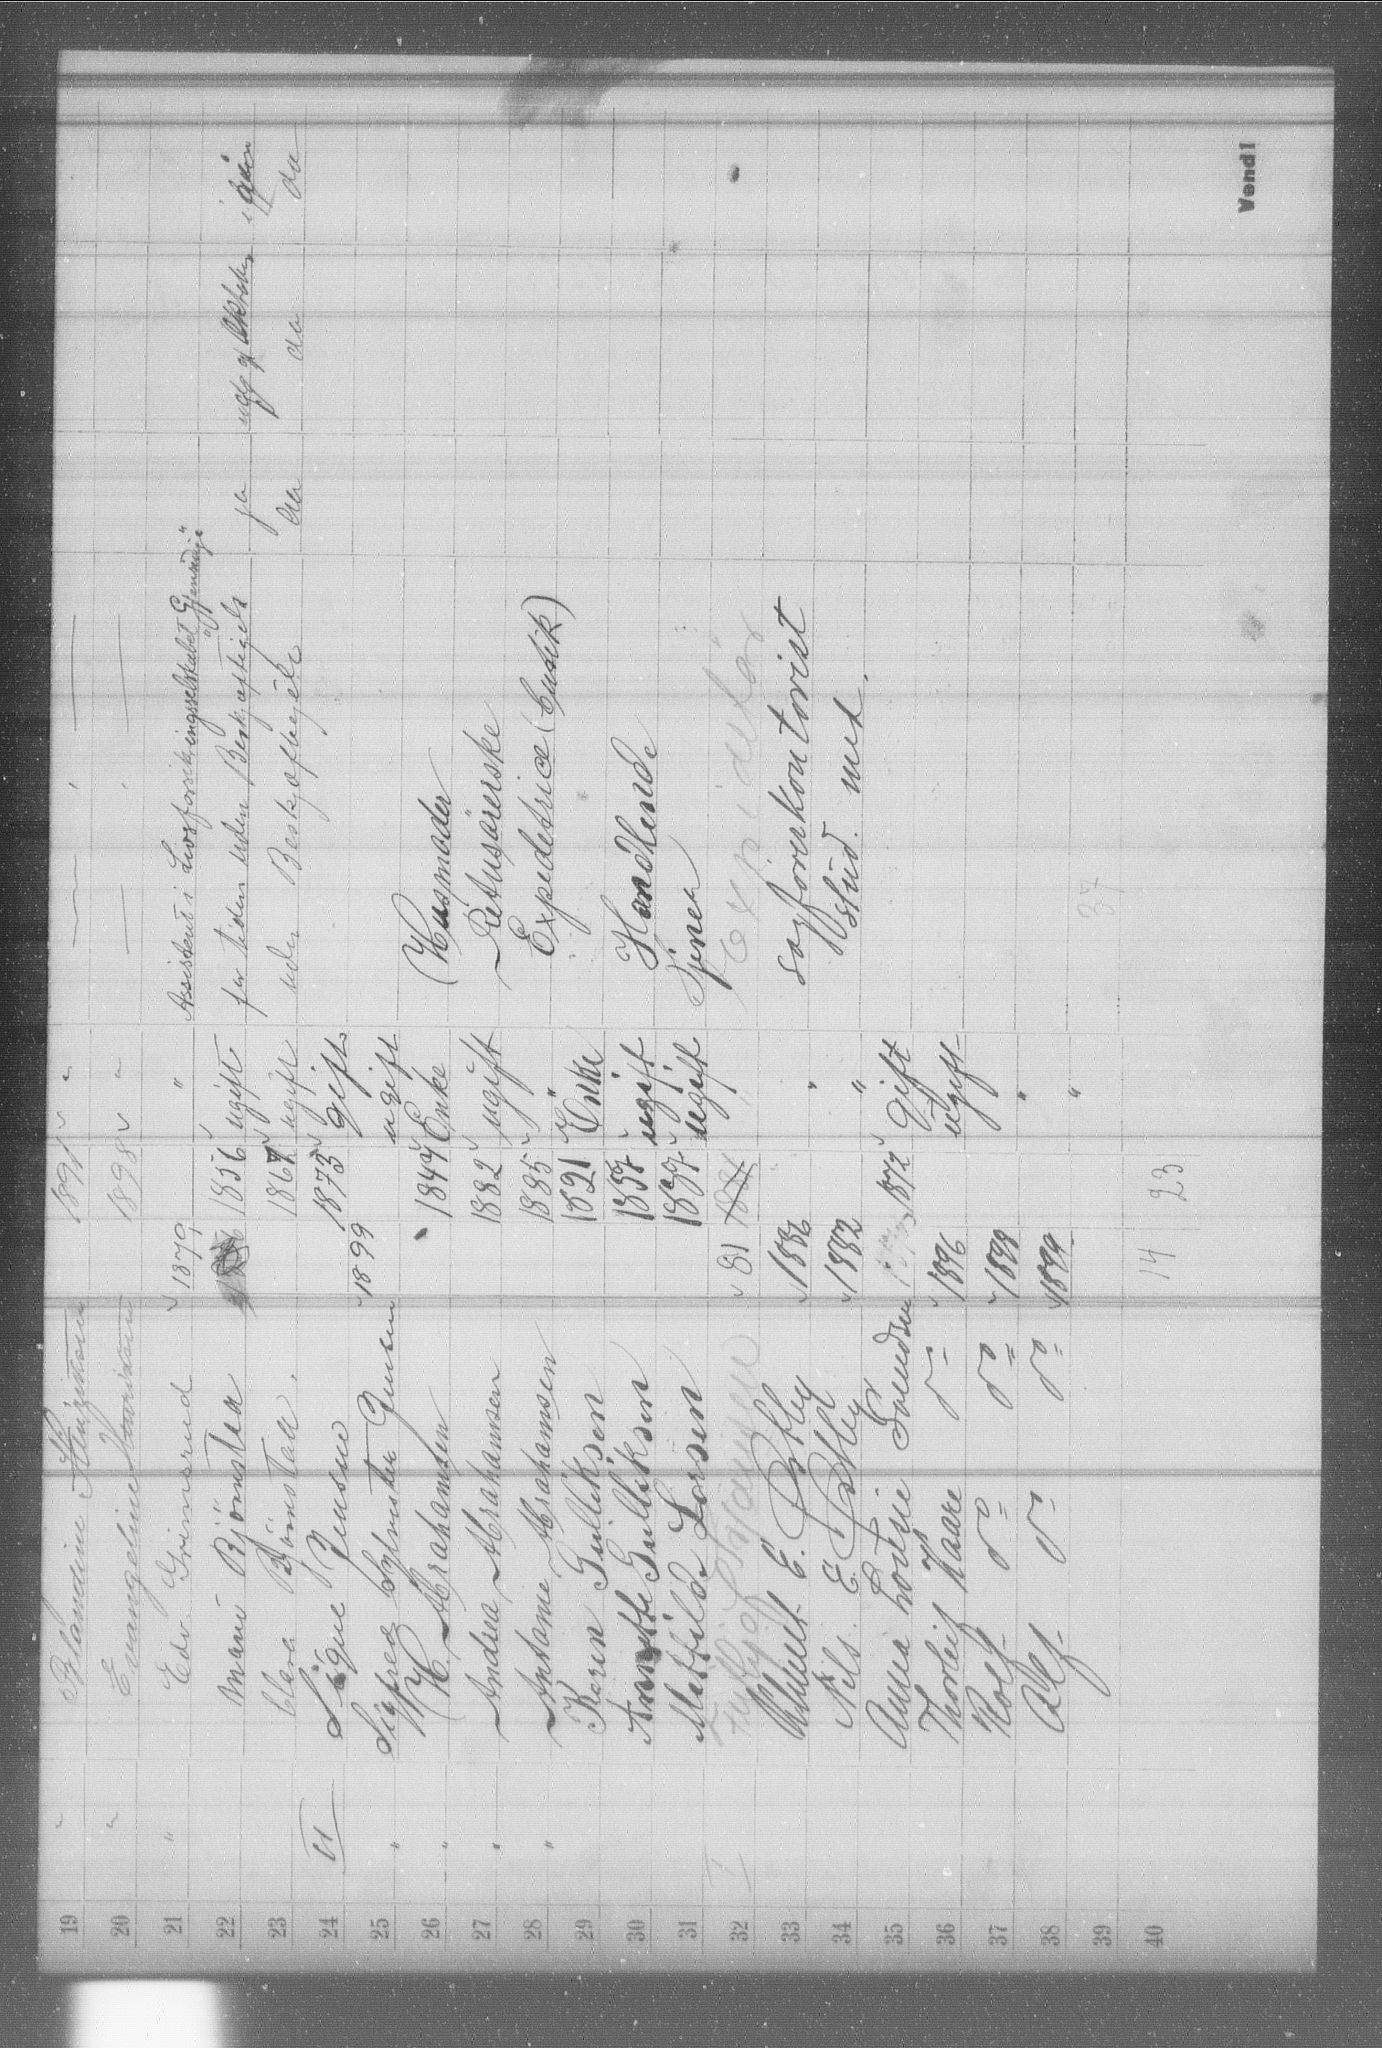 19 " Blandine 1891 " "
20 " Evangeline 1898 " "
21 " Edv. Grimsrud 1879 " Assistent i Livsforsikringsselskabet "Gjensidige"
22 Marie Björnstad 1856 ugift for tiden uden Beskjæftigelse ja
23 Clara Björnstad. 1867 ugift uden Beskjæftigelse da da da
24 II Signe Jensen 1873 gift
25 " Sigfred Sylvester Jensen 1899 ugift
26 " (K. Abrahamsen 1844 Enke (Husmoder
27 " Andrea Abrahamsen 1882 ugift Retusjörerske
28 " Antonie Abrahamsen 1885 " Expeditrice (butik)
29 Karen Gulliksen 1821 Enke
30 Anette Gulliksen 1857 ugift Handlende
31 Mathilde Larsen 1837 ugift Tjener
32 I 81 1881 " expeditör
33 E. 1886 " sagförerkontorist
34 Nils E. 1882 " stud. med.
35 Anna Lovise 1872 gift
36 Thorleif Kaare do 1896 ugift
37 Rolf do do 1898 "
38 Alf do do 1899 "
39 37
40 14 23
Vend!